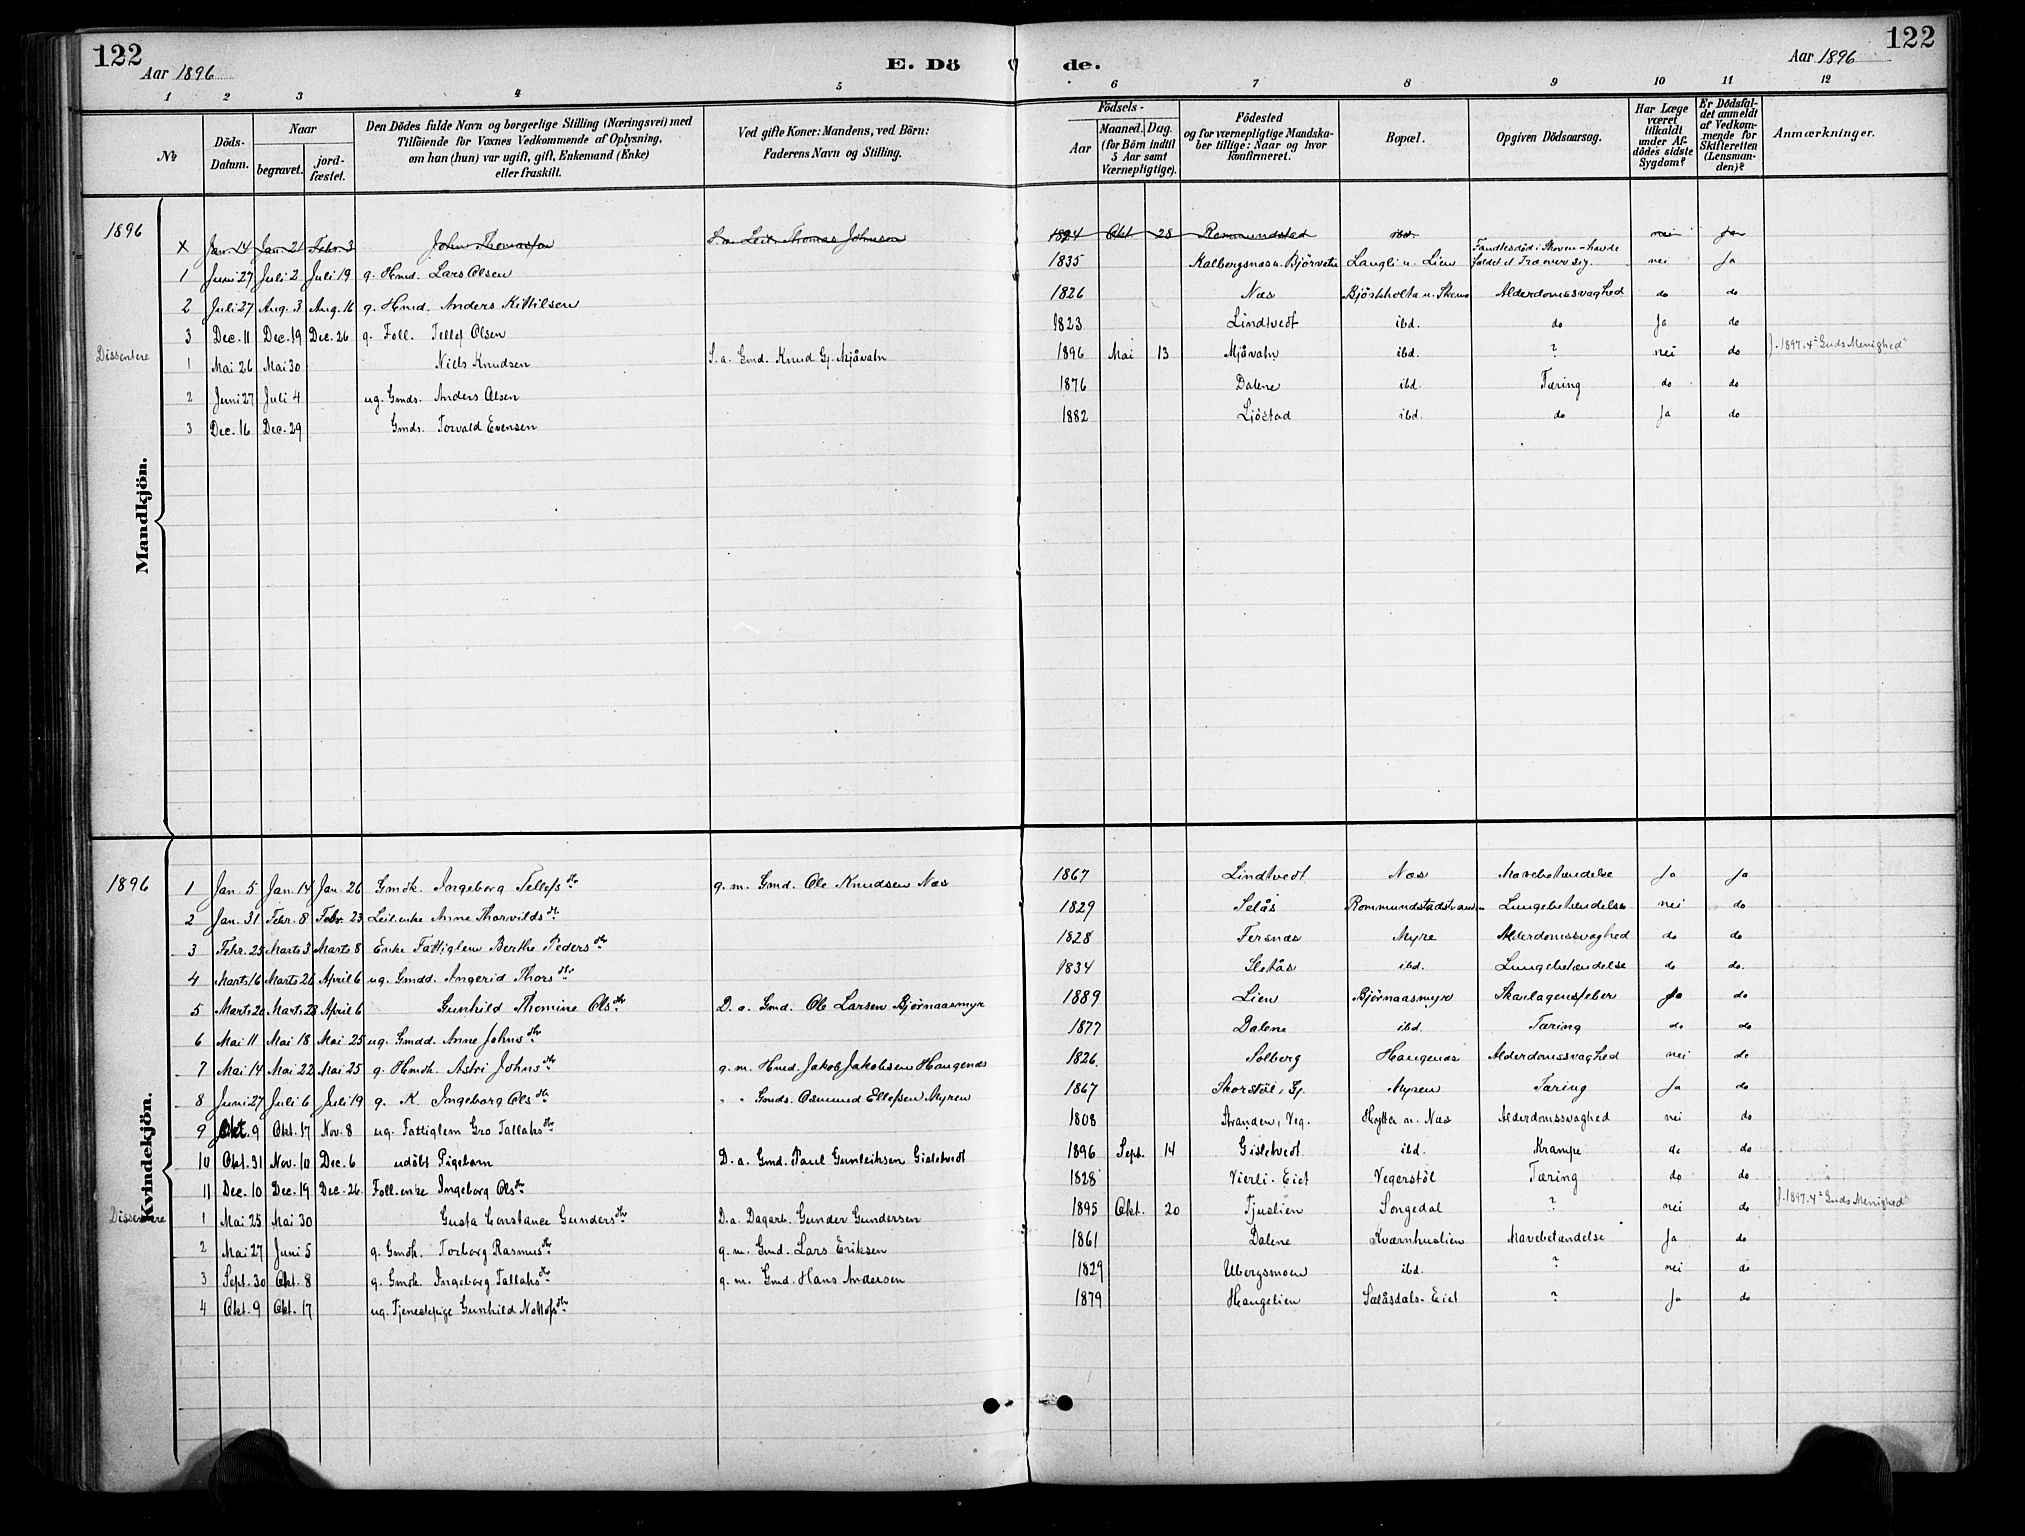 122
Aar 1896
E. Dö de.
Aar 1896
122
1 2 3 4 5 6 7 8 9 10 11 12
№
Döds-Datum.
Naar
begravet.
jord-fæstet.
Den Dödes fulde Navn og borgerlige Stilling (Næringsvei) med
Tilföiende for Voxnes Vedkommende af Oplysning,
om han (hun) var ugift, gift, Enkemand (Enke)
eller fraskilt.
Ved gifte Koner: Mandens, ved Börn:
Faderens Navn og Stilling.
Födsels-
Aar
Maaned. Dag.
(for Börn indtil
5 Aar samt
Værnepligtige).
Födested
og for værnepligtige Mandska-
ber tillige: Naar og hvor
konfirmeret.
Bopæl.
Opgiven Dödsaarsag.
Har Læge
været
tilkaldt
under Af-
dödes sidste
Sygdom?
Er Dödsfal-
det anmeldt
af Vedkom-
mende for
Skifteretten
(Lensman-
den)?
Anmærkninger.
Mandkjön.
1896
x Jan. 14 Jan. 21 Febr. 3 John Thomassen S. a. Leil. Thomas Johnsen 1894 Okt 28 Rommundstad ibd. nei ja
1 Juni 27 Juli 2 Juli 19 g. Hmd. Lars Olsen 1835 Kalbergsnæs u. Bjørvatn Langli u. Lien Fandtes død i Skoven – havde
faldet et Træ over sig. nei Ja
2 Juli 27 Aug. 3 Aug. 16 g. Hmd. Anders Kittilsen 1826 Næs Bjöshholt u. Skeno Alderdomssvaghed do do
3 Dec. 11 Dec. 19 Dec. 26 g. Foll. Tellef Olsen 1823 Lindtvedt ibd. do Ja do
Dissentere
1 Mai 26 Mai 30 Niels Knudsen S. a. Gmd. Knud Gj. Mjåvatn 1896 Mai 13 Mjåvatn ibd. ? nei do J. 1897. 4 "Guds Menighed"
2 Juni 27 Juli 4 ug. Gmds. Anders Olsen 1876 Dalene ibd. Tæring do do
3 Dec. 16 Dec. 29 Gmds. Torvald Evensen 1882 Ljöstad ibd. do Ja do
Kvindekjön.
1896
1 Jan. 5 Jan. 14 Jan. 26 Gmdk. Ingeborg Tellefsdtr g. m. Gmd. Ole Knudsen Næs 1867 Lindtvedt Næs Mavebetændelse Ja Ja
2 Jan. 31 Febr. 8 Febr. 23 Leil. enke Anne Thorvildsdtr 1829 Selås Rommundstadstranden Lungebetændelse nei do
3 Febr. 25 Marts 3 Marts 8 Enke Fattiglem Berthe Pedersdtr 1828 Tersnæs Myre Alderdomssvaghed do do
4 Marts 16 Marts 26 April 6 ug. Gmdd. Ingerid Thorsdtr 1834 Sletås ibd. Lungebetændelse do do.
5 Marts 20 Marts 28 April 6 Gunhild Thomine Olsdtr D. a. Gmd. Ole Larsen Bjørnaasmyr 1889 Lien Bjørnaasmyr Skarlagensfeber Ja do
6 Mai 11 Mai 18 Mai 25 ug. Gmdd. Anne Johnsdtr 1877 Dalene ibd. Tæring do do
7 Mai 14 Mai 22 Mai 25 g. Hmdk. Astri Johnsdtr g. m. Hmd. Jakob Jakobsen Haugenæs 1826 Solberg Haugenæs Alderdomssvaghed nei do
8 Juni 27 Juli 6 Juli 19 g. K. Ingeborg Olsdtr " " Gmds. Osmund Ellefsen Myren 1867 Skorstöl, Gj. Myren Tæring Ja do
9 Okt. 9 Okt. 17 Nov. 8 ug. Fattiglem Gro Tallaksdtr 1808 Stranden, Veg. Hytta u. Næs Alderdomssvaghed nei do
10 Okt. 31 Nov. 10 Dec. 6 udöbt Pigebarn D. a. Gmd. Paul Gunleiksen Gisletvedt 1896 Sept. 14 Gisletvedt ibd. Krampe do do
11 Dec. 10 Dec. 19 Dec. 26 Foll. enke Ingeborg Olsdtr 1828 Vierli-Eiet Vegerstöl Tæring do do
Dissentere
1 Mai 25 Mai 30 Gusta Constance Gundersdtr D. a. Dagarb. Gunder Gundersen 1895 Okt. 20 Tjuslien Songedal ? nei do J. 1897. 4 "Guds Menighed"
2 Mai 27 Juni 5 g. Gmdk. Torborg Rasmusdtr g. m. Gmd. Lars Eriksen 1861 Dalene Kværnhuslien Mavebetændelse Ja do
3 Sept. 30 Okt. 8 g. Gmdk. Ingeborg Tallaksdtr g. m. Gmd. Hans Andersen 1829 Ubergsmoen ibd. ? nei do
4 Okt. 9 Okt. 17 ug. Tjenestepige Gunhild Nottofsdtr 1879 Haugelien Selåsdals-Eiet ? Ja do